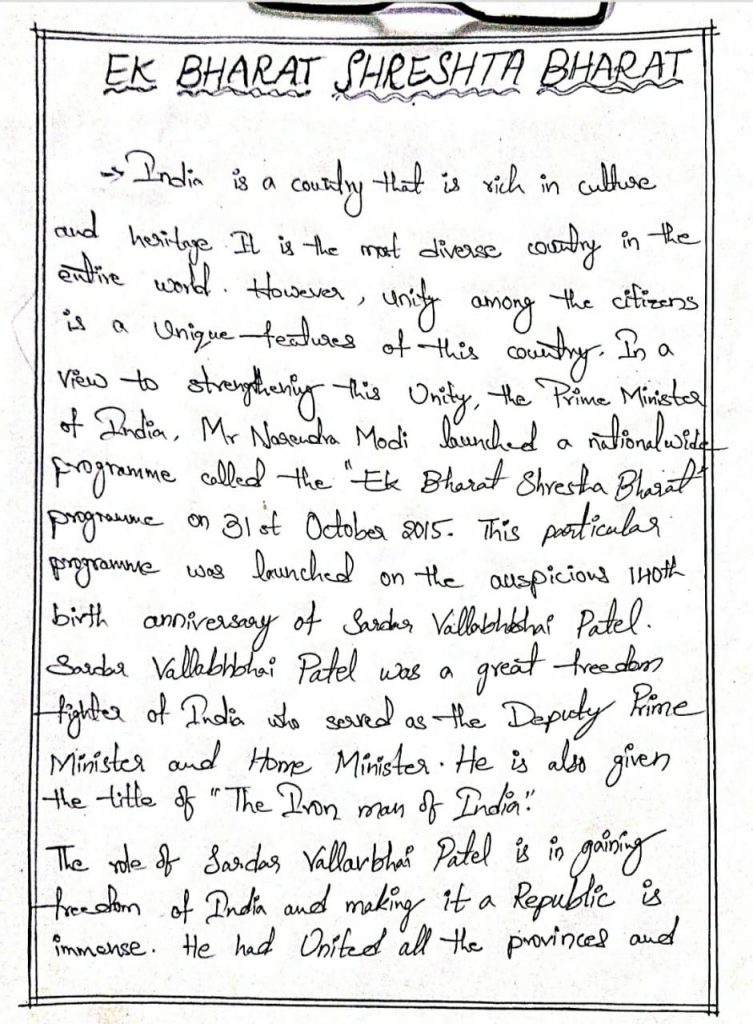 EK BHARAT SHRESHTA BHARAT
→ India is a country that is rich in culture
and heritage. It is the most diverse country in the
entire world. However, unity among the citizens
is a Unique features of this country. In a
view to strengthening this Unity, the Prime Minister
of India, Mr Narendra Modi launched a nationalwide
programme called the "Ek Bharat Shresta Bharat"
programme on 31st October 2015. This particular
programme was launched on the auspicious 140th
birth anniversary of Sardar Vallabhbhai Patel.
Sardar Vallabhbhai Patel was a great freedom
fighter of India who served as the Deputy Prime
Minister and Home Minister. He is also given
the title of "The Iron man of India."
The role of Sardar Vallarbhai Patel is in gaining
freedom of India and making it a Republic is
immense. He had United all the provinces and